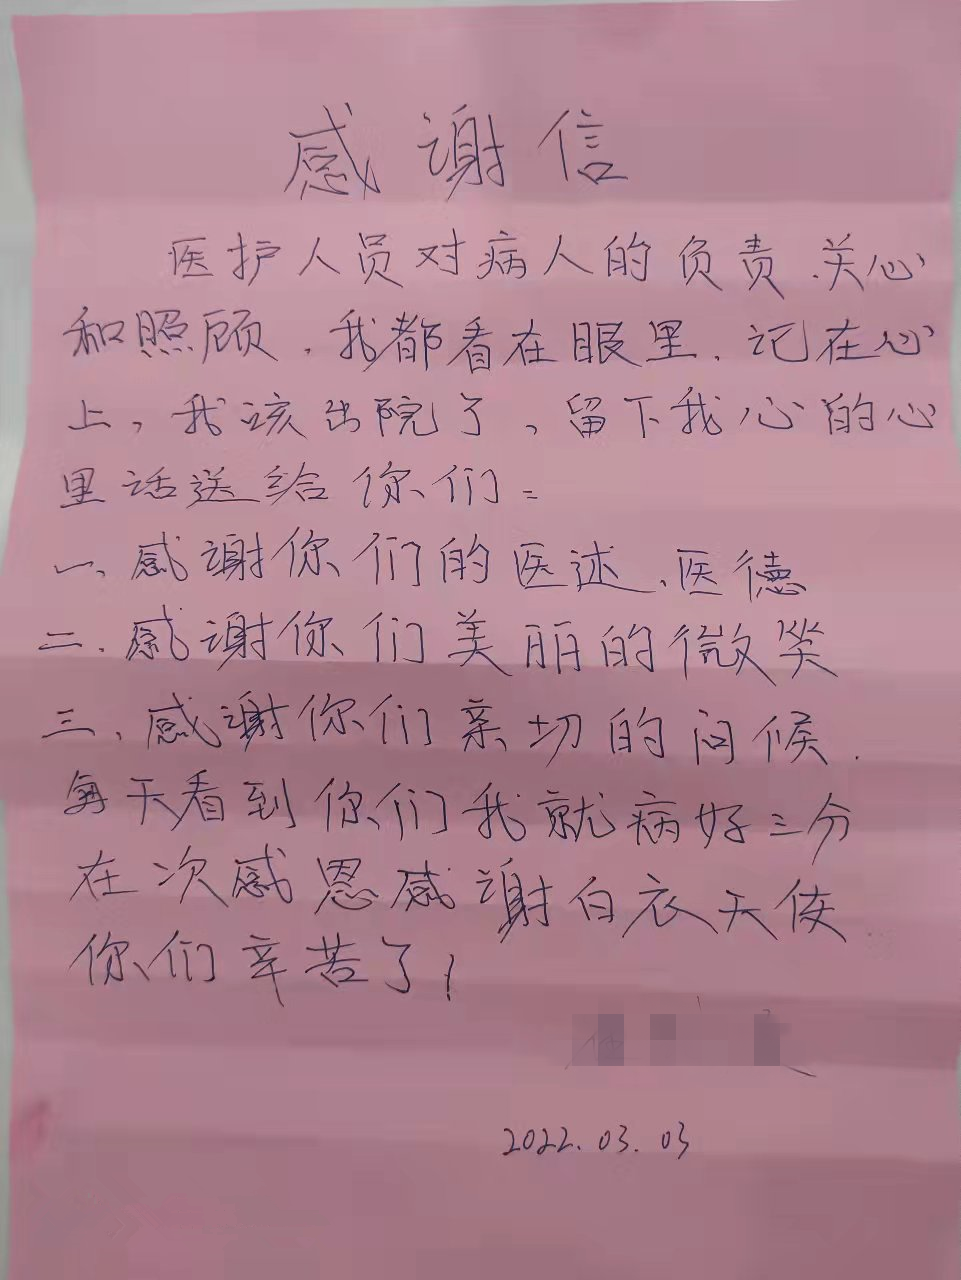 感谢信
医护人员对病人的负责、关心
和照顾，我都看在眼里，记在心
上，我该出院了，留下我心的心
里话送给你们：
一、感谢你们的医述、医德
二、感谢你们美丽的微笑
三、感谢你们亲切的问候.
每天看到你们我就病好三分
在次感恩感谢白衣天使
你们辛苦了！
2022.03.03